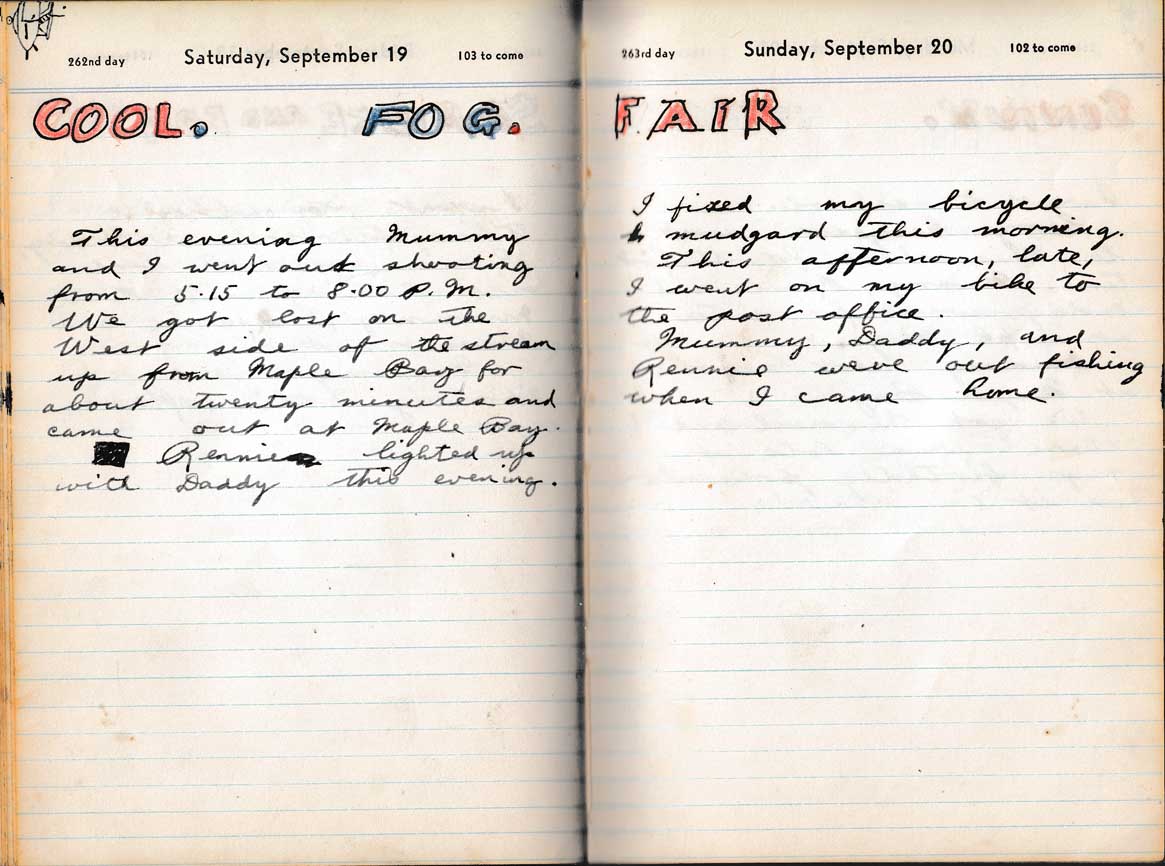 262nd day Saturday, September 19 103 to come
COOL. FOG.
This evening Mummy
and I went out shooting
from 5.15 to 8.00 P.M.
We got lost on the
West side of the stream
up from Maple Bay for
about twenty minutes and
came out at Maple Bay.
Rennie lighted up
with Daddy this evening.
263rd day Sunday, September 20 102 to come
FAIR
I fixed my bicycle
mudgard this morning.
This afternoon, late,
I went on my bike to
the post office.
Mummy, Daddy, and
Rennie were out fishing
when I came home.